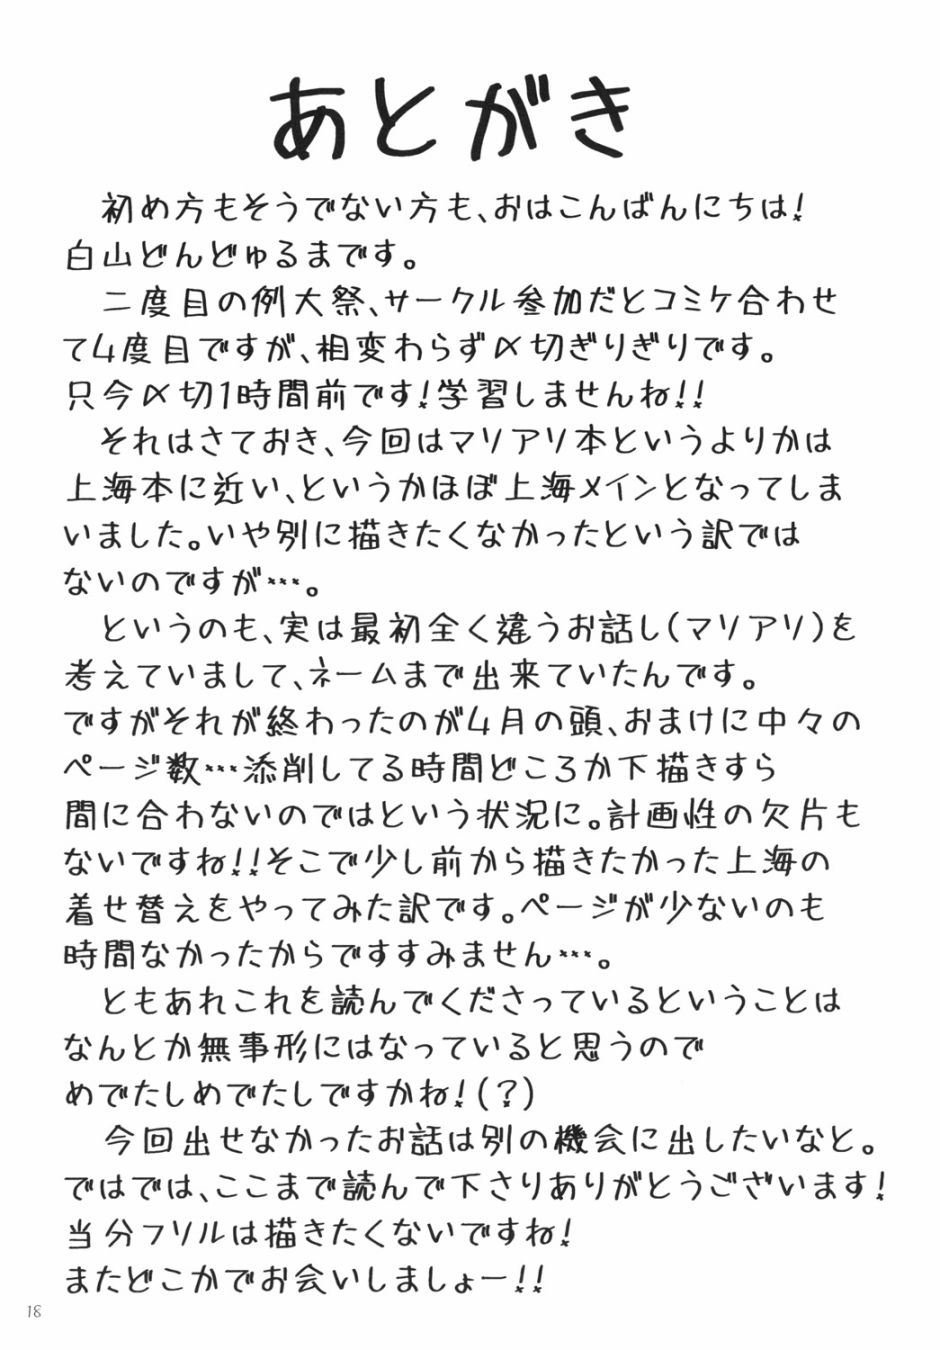 あとがき
初め方もそうでない方も、おはこんばんにちは!
白山どんどゅるまです。
二度目の例大祭、サークル参加だとコミケ合わせ
て4度目ですが、相変わらず〆切ぎりぎりです。
只今〆切1時間前です!学習しませんね!!
それはさておき、今回はマリアリ本というよりかは
上海本に近い、というかほぼ上海メインとなってしま
いました。いや別に描きたくなかったという訳では
ないのですが…。
というのも、実は最初全く違うお話し(マリアリ)を
考えていまして、ネームまで出来ていたんです。
ですがそれが終わったのが4月の頭、おまけに中々の
ページ数…添削してる時間どころか下描きすら
間に合わないのではという状況に。計画性の欠片も
ないですね!!そこで少し前から描きたかった上海の
着せ替えをやってみた訳です。ページが少ないのも
時間なかったからですすみません…。
ともあれこれを読んでくださっているということは
なんとか無事形にはなっていると思うので
めでたしめでたしですかね!(?)
今回出せなかったお話は別の機会に出したいなと。
ではでは、ここまで読んで下さりありがとうございます!
当分フリルは描きたくないですね!
またどこかでお会いしましょー!!
18